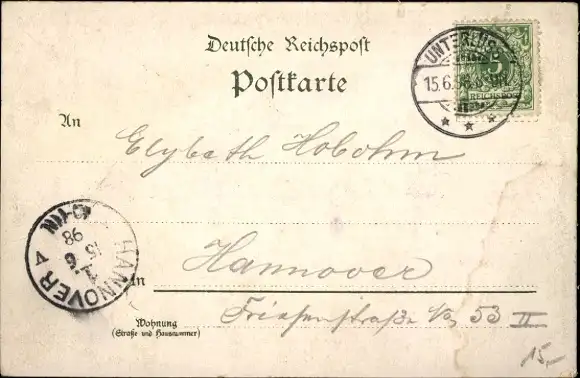 Deutsche Reichspost
Postkarte
UNTERLÜSS
15.6.98
5
REICHSPOST
An
Elysbeth Hobohm
HANNOVER
15 6
98
Hannover
in
Friesenstraße 53 II
Wohnung
(Straße und Hausnummer)
15,-